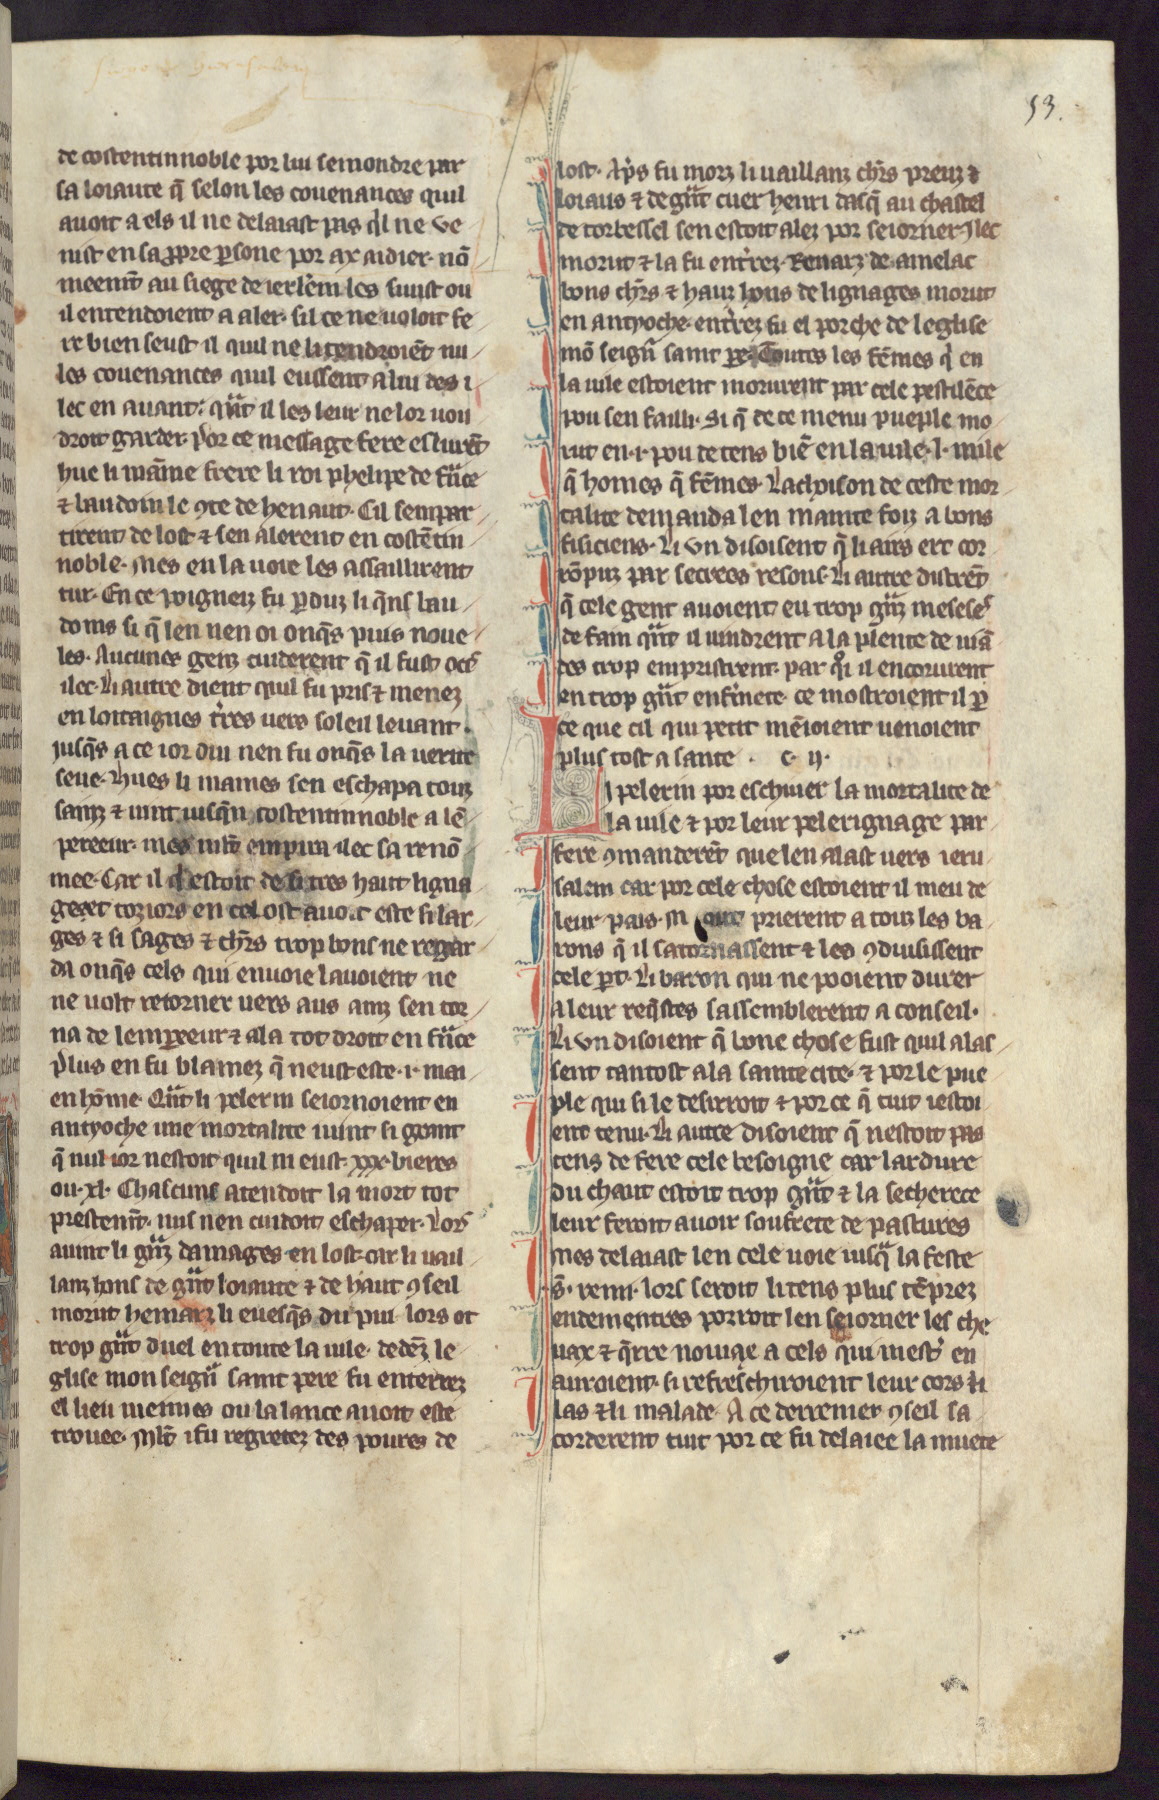 53.
de costentinnoble por lui semondre par
sa loiaute q̃ selon les couenances quil
auoit a els il ne delaiast pas ql ne ve
nist en sa ppre psone por ax aidier. nõ
meemt̃ au siege de ierlẽm les siuist ou
il entendoient a aler. sil ce ne uoloit fe
re bien seust il quil ne li tendroiẽt nu
les couenances quil eussent a lui des i
lec en auant. qñt il les leur ne lor uou
droit garder. Por ce message fere eslurẽt
hue li maĩne frere li roi phelipe de frãce
⁊ baudoin le ꝯte de henaut. Cil sempar
tirent de lost ⁊ sen alerent en costẽtin
noble. Mes en la uoie les assaillirent
tur. En ce poigneiz fu pduz li q̃ns bau
doins si q̃ len nen oi onq̃s puis noue
les. Aucunes genz cuiderent q̃ il fust ocis
ilec. li autre dient quil fu pris ⁊ menez
en lointaignes t̃res uers soleil leuant.
jusq̃s a ce ior dui nen fu onq̃s la uerite
seue. hues li maines sen eschapa touz
sainz ⁊ uint iusq̃n costentinnoble a lẽ
pereeur. mes ml̃t empira ilec sa renõ
mee. Car il q̃ estoit de si tres haut ligna
ge ⁊ et toziors en cel ost auoit este si lar
ges ⁊ si sages ⁊ chr̃s trop bons ne regar
da onq̃s cels qui enuoie lauoient ne
ne uolt retorner uers aus ainz sen tor
na de lempereeur ⁊ ala tot droit en frãce
Plus en fu blamez q̃ neust este .i. mai
en hõme. Qñt li pelerin seiornoient en
antyoche une mortalite uint si grant
q̃ nul ior nestoit quil ni eust .xxx. bieres
ou .xl. Chascuns atendoit la mort tot
prestemt̃. nus nen cuidoit eschaper. Lors
auint li grãz damages en lost. car li uail
lanz hons de grãt loiaute ⁊ de haut ꝯseil
morut hemarz li euesq̃s du pui. lors ot
trop grãt duel en toute la uile. dedẽz le
glise mon seignr̃ saint pere fu enterrez
el lieu meimes ou la lance auoit este
trouee. Ml̃t i fu regretez des poures de
lost. Ap̃s fu morz li uaillanz chr̃s preuz ⁊
loiaus ⁊ de grãt cuer henri dasq̃ au chastel
de torbessel sen estoit alez por seiorner. Ilec
morut ⁊ la fu ent̃rez. Renarz de amelac
bons chr̃s ⁊ hauz hons de lignages morut
en antyoche. ent̃rez fu el porche de leglise
mõ seignr̃ saint pe. Toutes les fẽmes q̃ en
la uile estoient morurent par cele pestilẽce
pou sen failli. Si q̃ de ce menu pueple mo
rut en .i. pou de tens biẽ en la uile .l. mile
q̃ homes q̃ fẽmes. Lachoison de ceste mor
talite demanda len mainte foiz a bons
fisiciens. Li vn disoisent q̃ li airs ert cor
rõpuz par secrees resons. Li autre distrẽt
q̃ cele gent auoient eu trop grãz meseses
de fain qñt il uindrent a la plente de uiã
des trop empristrent. par qoi il encorurent
en trop grãt enfmete. ce mostroient il p
ce que cil qui petit mẽioient uenoient
plus tost a sante . c. ii.
Li pelerin por eschiuer la mortalite de
la uile ⁊ por leur pelerignage par
fere ꝯmanderẽt que len alast uers ieru
salem car por cele chose estoient il meu de
leur pais. prierent a touz les ba
rons q̃ il satornassent ⁊ les ꝯduisissent
cele pt. Li baron qui ne pooient durer
a leur reqstes sassemblerent a conseil.
Li vn disoient q̃ bone chose fust quil alas
sent tantost a la sainte cite. ⁊ por le pue
ple qui si le desirroit ⁊ por ce q̃ tuit iestoi
ent tenu. Li autre disoient q̃ nestoit pas
tens de fere cele besoigne car lardure
du chaut estoit trop grãt ⁊ la secherece
leur feroit auoir soufrete de pastures
mes delaiast len cele uoie iusq̃ la feste
s̃. remi. lors seroit li tens plus tẽprez
endementres porroit len seiorner les che
uax ⁊ q̃rre nouiae a cels qui mest̃ en
auroient. si refreschiroient leur cors ⁊ li
las ⁊ li malade. A ce derrenier ꝯseil sa
corderent tuit por ce fu delaiee la muete